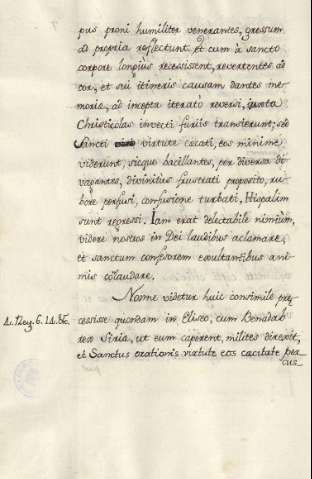 pus proni humiliter venerantes, gressum
ad propria reflectunt. Et cum à sancto
corpore longius recessissent, revertentes ad
cor, et sui itineris causam dantes me-
moria, ad incepta iterato reversi, juxta
Christicolas invecti furiis transierunt; sed
Sancti virtute cæcati, eos minime
viderunt, sicque bacillantes, per diversa di-
vagantes, divinitus frustrati proposito, ru-
bore perfusi, confusione turbati, Hispalim
sunt regressi. Iam erat delectabile nimium,
videre nostros in Dei laudibus aclamare,
et sanctum confessorem exultantibus ani-
mis colaudare.
Nonne videtur huic consimile pre-
4. Reg. 6. 14. &c. cessisse quondam in Eliseo, cum Benadab
rex Siria, ut eum caperent, milites direxit,
et Sanctus orationis virtute eos cæcitate per-
cus-